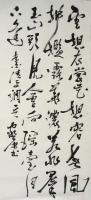 雲想衣裳花想容春風
拂檻露華濃若非群
玉山頭見會向瑤臺月
下逢